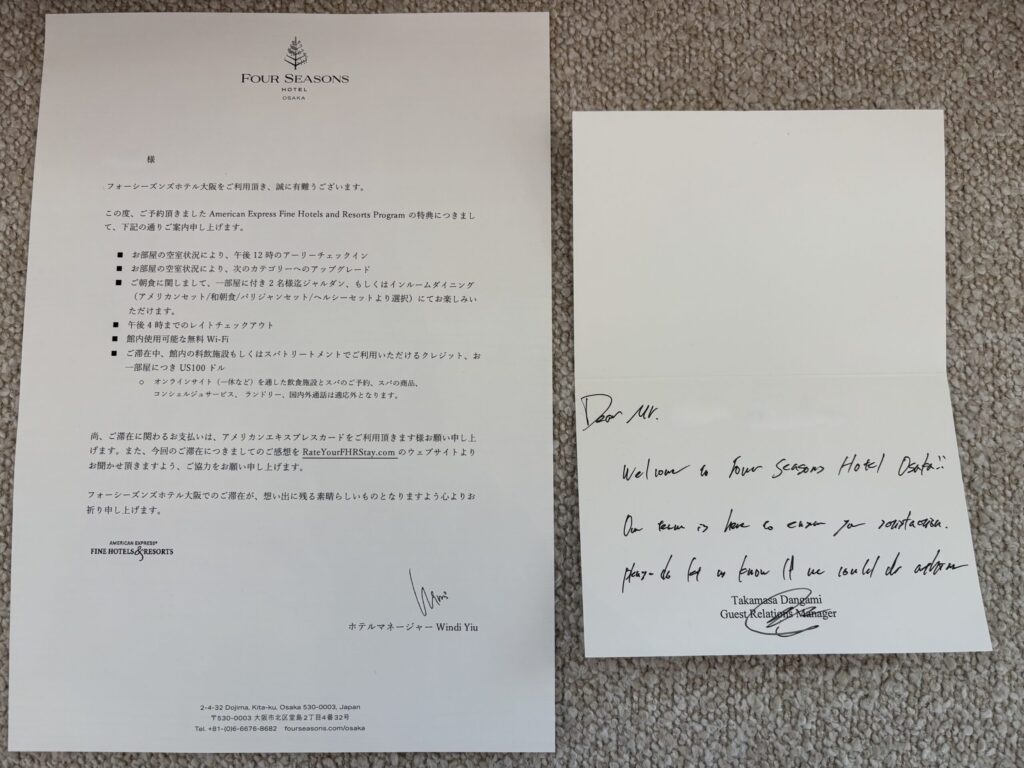 FOUR SEASONS
HOTEL
OSAKA
様
フォーシーズンズホテル大阪をご利用頂き、誠に有難うございます。
この度、ご予約頂きました American Express Fine Hotels and Resorts Program の特典につきまし
て、下記の通りご案内申し上げます。
■ お部屋の空室状況により、午後 12 時のアーリーチェックイン
■ お部屋の空室状況により、次のカテゴリーへのアップグレード
■ ご朝食に関しまして、一部屋に付き 2 名様迄ジャルダン、もしくはインルームダイニング
（アメリカンセット/和朝食/パリジャンセット/ヘルシーセットより選択）にてお楽しみい
ただけます。
■ 午後 4 時までのレイトチェックアウト
■ 館内使用可能な無料 Wi-Fi
■ ご滞在中、館内の料飲施設もしくはスパトリートメントでご利用いただけるクレジット、お
一部屋につき US100 ドル
○ オンラインサイト（一休など）を通した飲食施設とスパのご予約、スパの商品、
コンシェルジュサービス、ランドリー、国内外通話は適応外となります。
尚、ご滞在に関わるお支払いは、アメリカンエキスプレスカードをご利用頂きます様お願い申し上
げます。また、今回のご滞在につきましてのご感想を RateYourFHRStay.com のウェブサイトより
お聞かせ頂きますよう、ご協力をお願い申し上げます。
フォーシーズンズホテル大阪でのご滞在が、想い出に残る素晴らしいものとなりますよう心よりお
祈り申し上げます。
AMERICAN EXPRESS®
FINE HOTELS & RESORTS
ホテルマネージャー Windi Yiu
2-4-32 Dojima, Kita-ku, Osaka 530-0003, Japan
〒530-0003 大阪市北区堂島2丁目4番32号
Tel. +81-(0)6-6676-8682 fourseasons.com/osaka
Dear Mr.
Welcome to Four Seasons Hotel Osaka!!
Our team is here to ensure your satisfaction.
Please do let us know if we could do
Takamasa Dangami
Guest Relations Manager